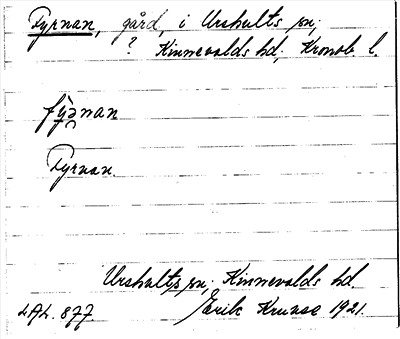 Fyrnan, gård, i Urshults sn;
? Kinnevalds hd; Kronob. l.
fỳ̱ənan
Fyrnan.
Urshults sn; Kinnevalds hd.
LAL. 877 Erik Kruuse 1921.